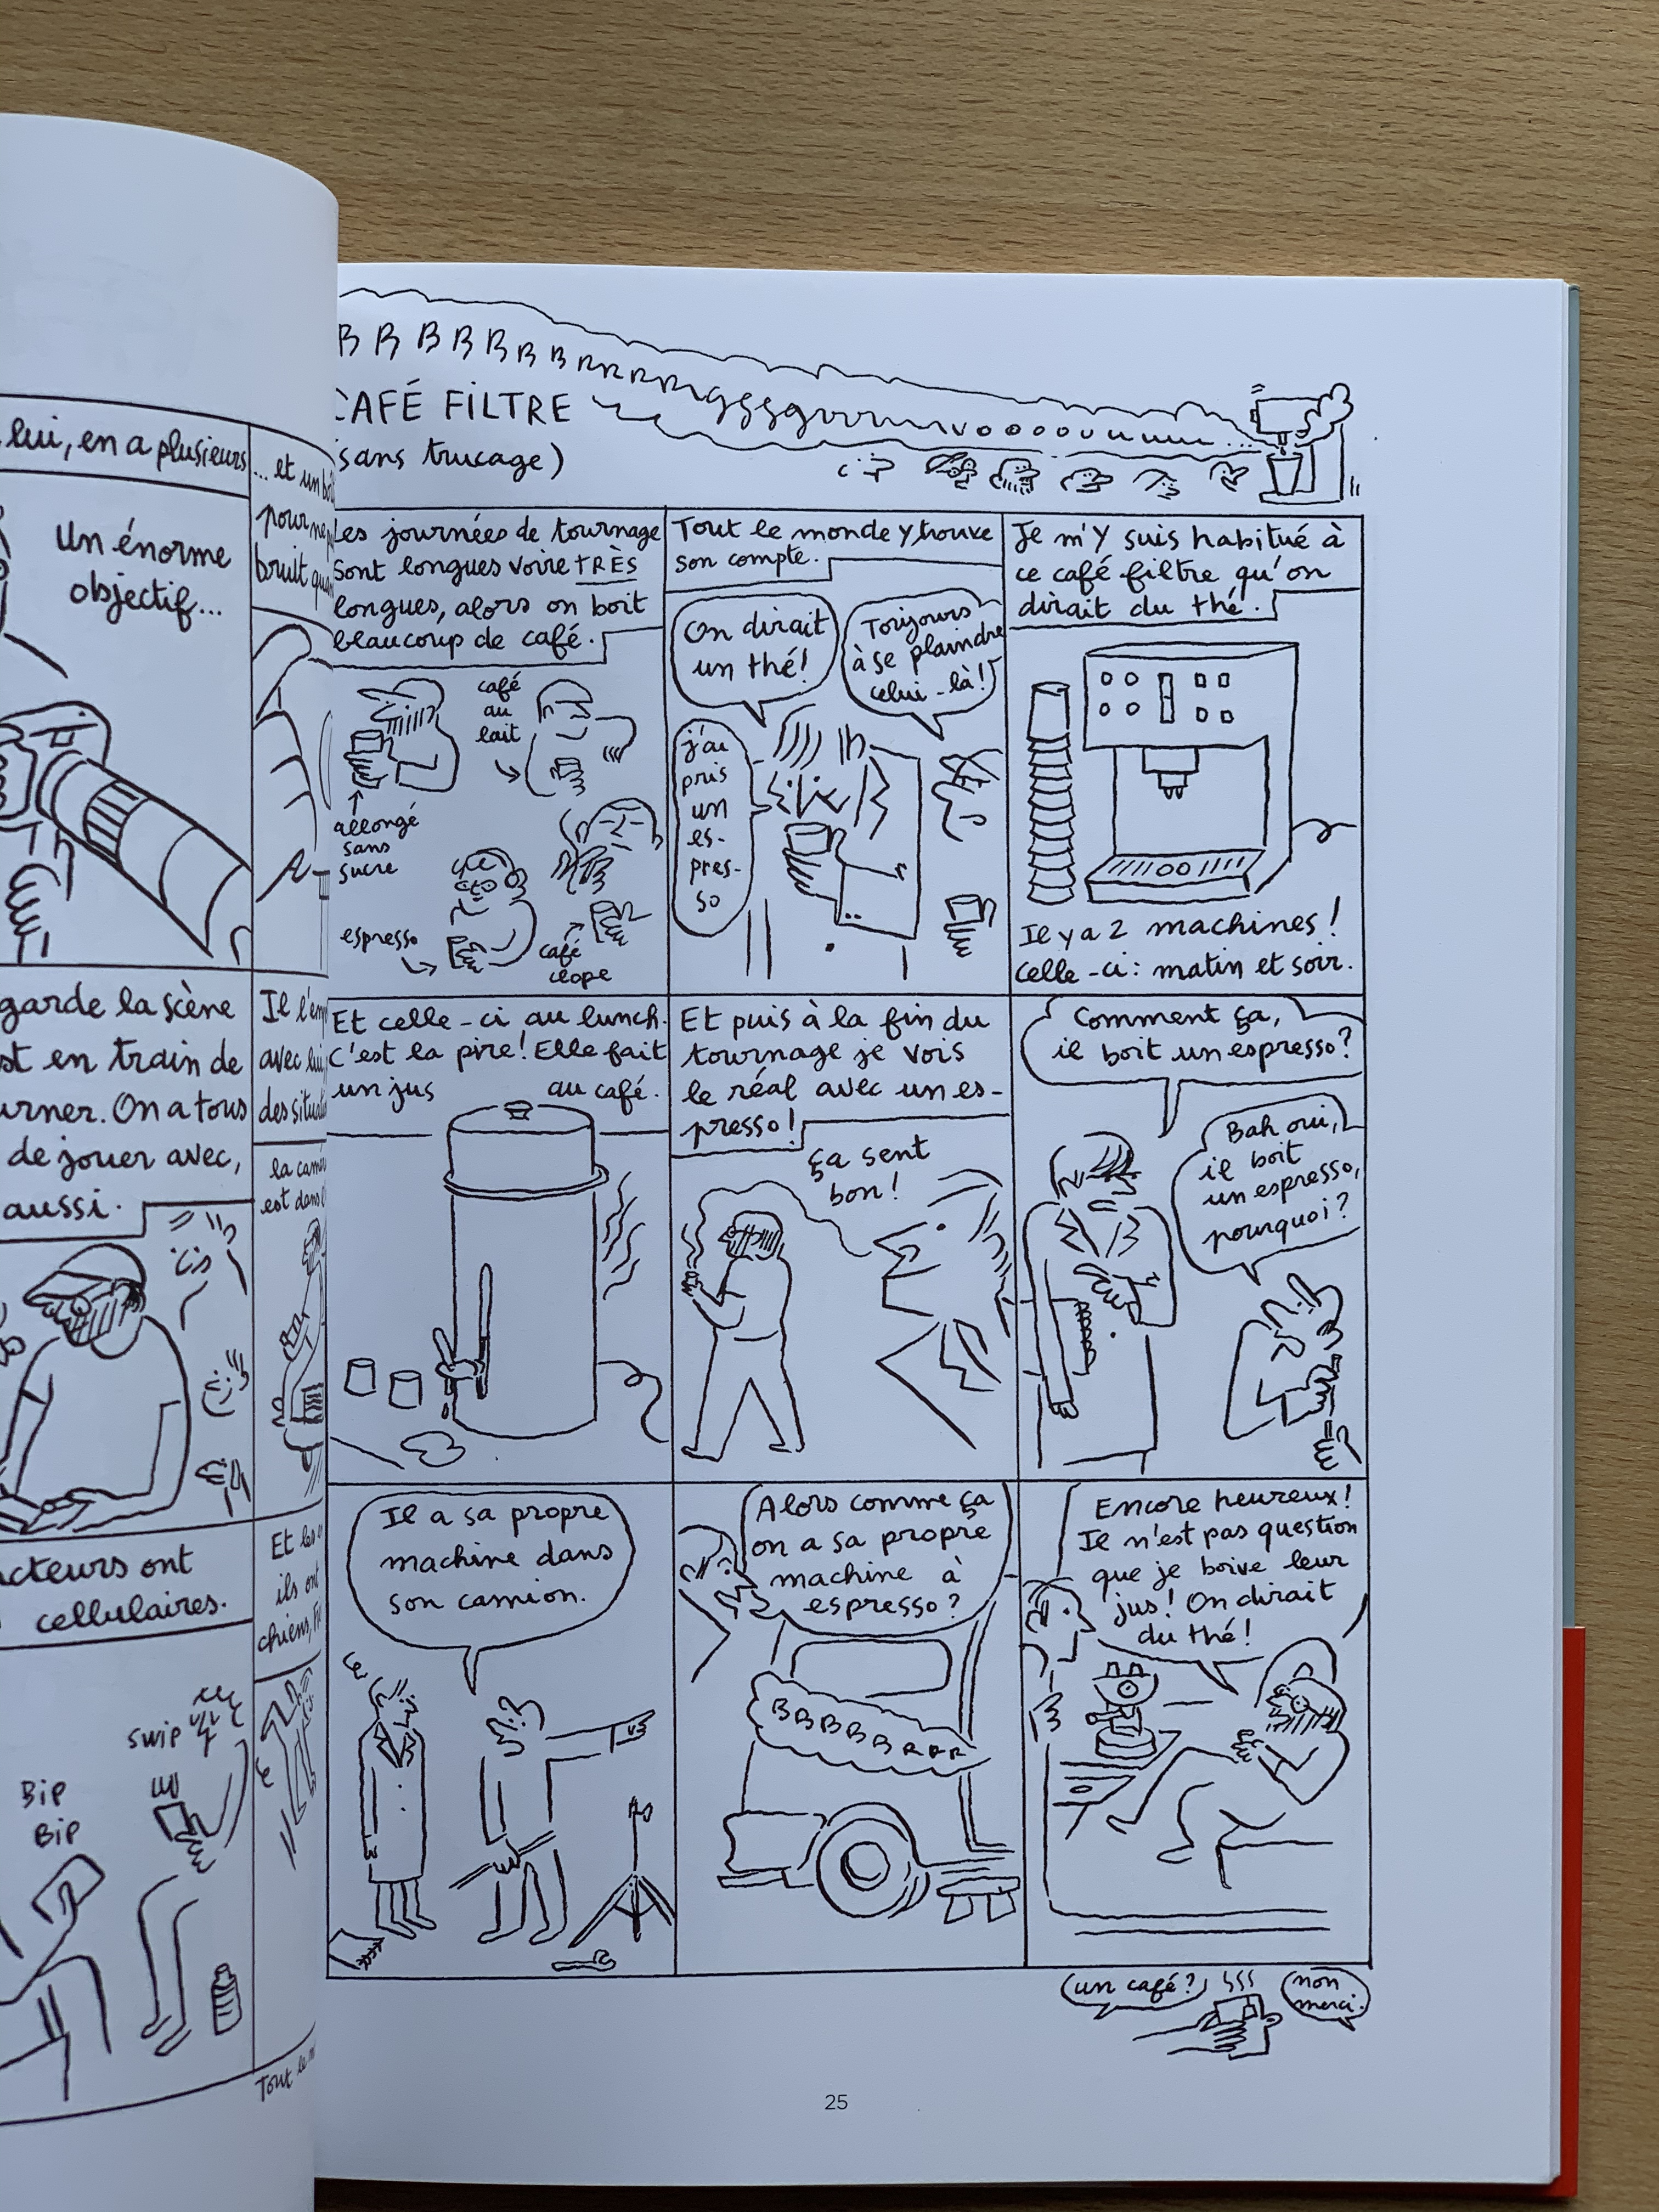 lui, en a plusieurs
un énorme
objectif...
... et un
pour
bruit
garde la scène
en train de
On a tous
de jouer avec,
aussi.
Il
avec lui
la
est dans
ont
cellulaires.
Et les
ils ont
chiens,
swip
Bip
Bip
Tout le
B R B B R R B R R R R R gggggrrrrnvooooouuuuu...
CAFÉ FILTRE
(sans trucage)
Les journées de tournage
sont longues voire TRÈS
longues, alors on boit
beaucoup de café.
café
au
lait
allongé
sans
sucre
espresso
café
clope
Tout le monde y trouve
son compte.
On dirait
un thé!
Toujours
à se plaindre
celui-là!
j'ai
pris
un
es-
pres-
so
Je m'y suis habitué à
ce café filtre qu'on
dirait du thé.
Il y a 2 machines!
Celle-ci: matin et soir.
Et celle-ci au lunch.
C'est la pire! Elle fait
un jus au café.
Et puis à la fin du
tournage je vois
le réal avec un es-
presso!
ça sent
bon!
Comment ça,
il boit un espresso?
Bah oui,
il boit
un espresso,
pourquoi?
Il a sa propre
machine dans
son camion.
Alors comme ça
on a sa propre
machine à
espresso?
BBBBBRRR
Encore heureux!
Il n'est pas question
que je boive leur
jus! On dirait
du thé!
un café?
non
merci.
25